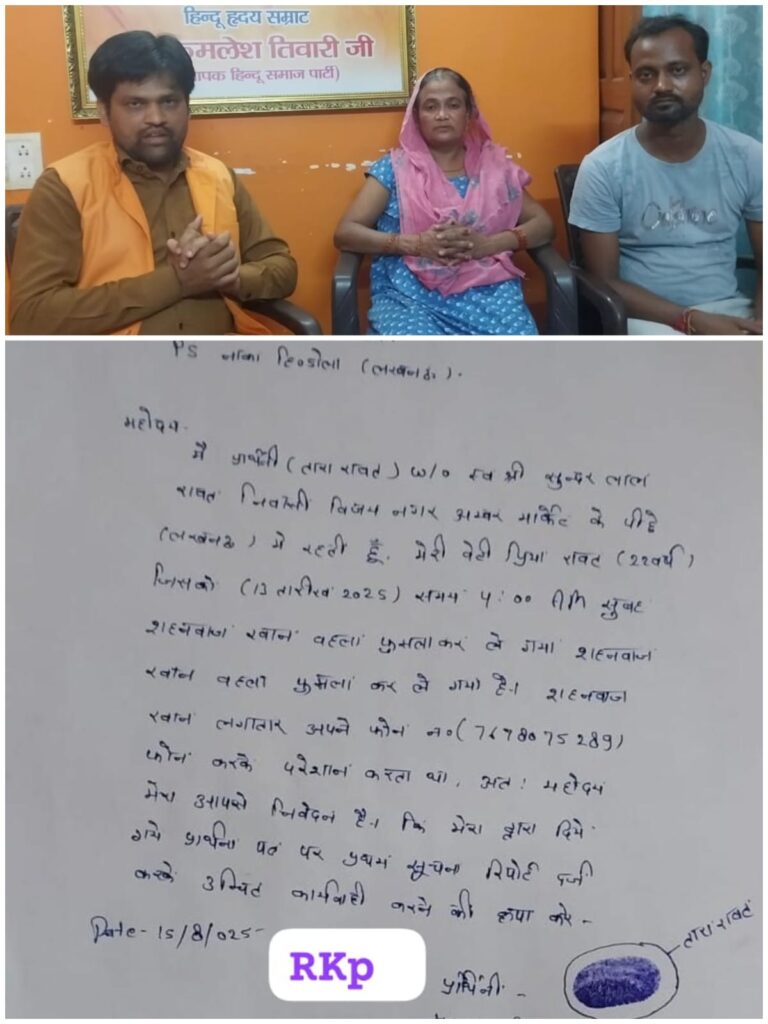 हिन्दू हृदय सम्राट
कमलेश तिवारी जी
थापक हिन्दू समाज पार्टी)
PS नाका हिण्डोला (लखनऊ).
महोदय-
मै प्रार्थनी (तारा रावत) w/o स्व श्री सुन्दर लाल
रावत निवासी विजय नगर अम्बर मार्केट के पीछे
(लखनऊ) मे रहती हूँ. मेरी बेटी प्रिया रावत (22वर्ष)
जिसको (13 तारीख 2025) समय 4:00 AM सुबह
शहनवाज खान वहला फुसलाकर ले गया शहनवाज
खान वहला फुसला कर ले गया है। शहनवाज
खान लगातार अपने फोन न०(7678075289)
फोन करके परेशान करता था, अतः महोदय
मेरा आपसे निवेदन है। कि मेरा द्वारा दिये
गये प्रार्थना पत्र पर प्रथम सूचना रिपोर्ट दर्ज
करके उचित कार्यवाही करने की कृपा करे-
Date- 15/8/025-
RKp
प्रार्थिनी -
तारा रावत